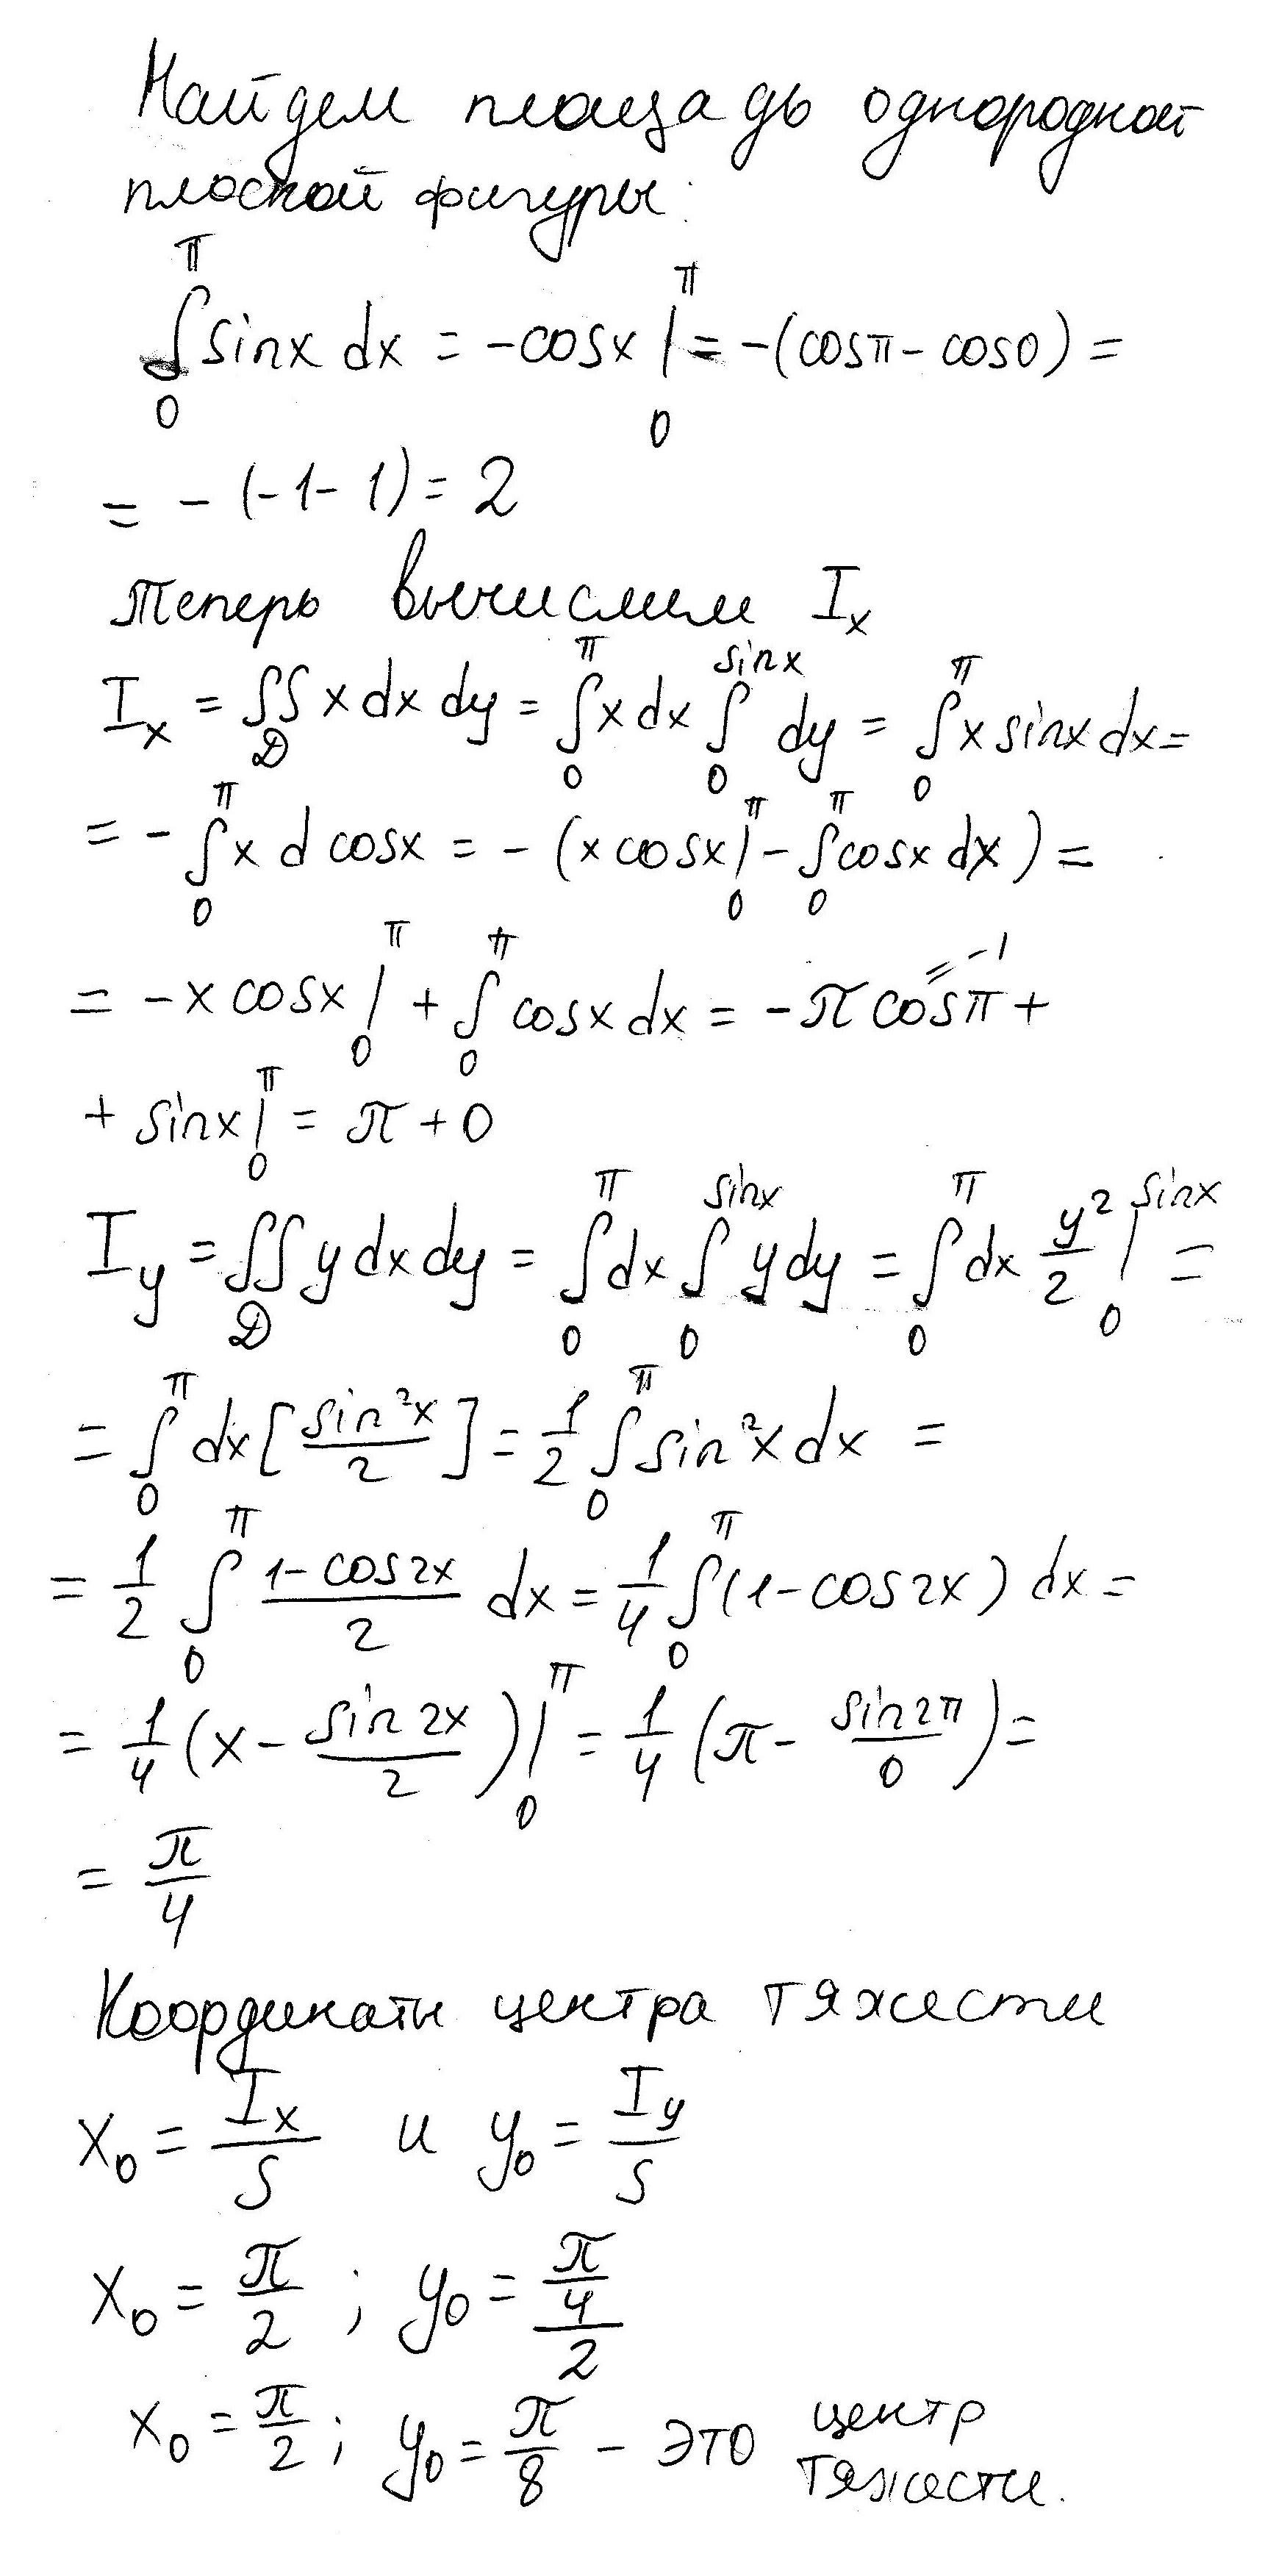 Найдем площадь однородной
плоской фигуры:
∫₀^π sinx dx = -cosx |₀^π = -(cosπ - cos0) =
= - (-1-1) = 2
теперь вычислим Iₓ
Iₓ = ∬_D x dx dy = ∫₀^π x dx ∫₀^sinx dy = ∫₀^π x sinx dx =
= - ∫₀^π x d cosx = - (x cosx |₀^π - ∫₀^π cosx dx) =
= -x cosx |₀^π + ∫₀^π cosx dx = -π cosπ^(= -1) +
+ sinx |₀^π = π + 0
I_y = ∬_D y dx dy = ∫₀^π dx ∫₀^sinx y dy = ∫₀^π dx y²/2 |₀^sinx =
= ∫₀^π dx [sin²x/2] = 1/2 ∫₀^π sin²x dx =
= 1/2 ∫₀^π (1-cos2x)/2 dx = 1/4 ∫₀^π (1-cos2x) dx =
= 1/4 (x - sin2x/2) |₀^π = 1/4 (π - sin2π/0) =
= π/4
Координаты центра тяжести
x₀ = Iₓ/S и y₀ = I_y/S
x₀ = π/2 ; y₀ = (π/4)/2
x₀ = π/2 ; y₀ = π/8 - это центр
тяжести.